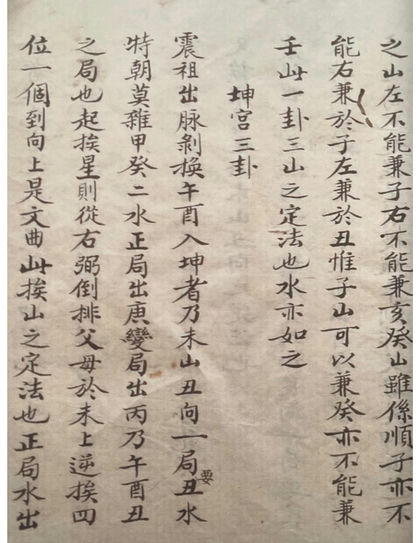 之山左不能兼子右不能兼亥癸山雖係順子亦不
能右兼於子左兼於丑惟子山可以兼癸亦不能兼
壬此一卦三山之定法也水亦如之
坤宫三卦
震祖出脉剝換午酉入坤者乃未山丑向一局丑水
要
特朝莫雜甲癸二水正局出庚變局出丙乃午酉丑
之局也起挨星則從右弼倒排父母於未上逆挨四
位一個到向上是文曲此挨山之定法也正局水出